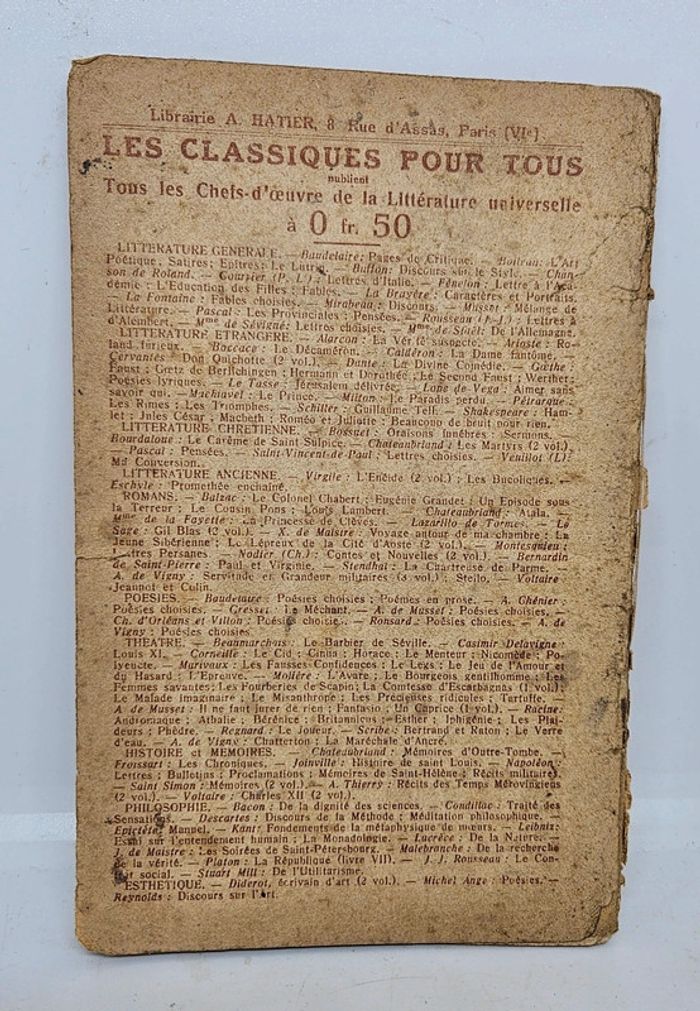 Librairie A. HATIER, 8 Rue d'Assas, Paris (VIe)
LES CLASSIQUES POUR TOUS
publient
Tous les Chefs-d'œuvre de la Littérature universelle
à 0 fr. 50
LITTERATURE GENERALE. — Baudelaire: Pages de Critique. — Boileau: L'Art
Poétique, Satires; Epîtres; Le Lutrin. — Buffon: Discours sur le Style. — Chan-
son de Roland. — Courrier (P. L.): Lettres d'Italie. — Fénelon: Lettre à l'Aca-
démie; L'Education des Filles; Fables. — La Bruyère: Caractères et Portraits.
— La Fontaine: Fables choisies. — Mirabeau: Discours. — Musset: Mélange de
Littérature. — Pascal: Les Provinciales; Pensées. — Rousseau (J.-J.): Lettres à
d'Alembert. — Mme de Sévigné: Lettres choisies. — Mme de Staël: De l'Allemagne.
LITTERATURE ETRANGERE. — Alarcon: La Vérité suspecte. — Arioste: Ro-
land furieux. — Boccace: Le Décaméron. — Caldéron: La Dame fantôme. —
Cervantès: Don Quichotte (2 vol.). — Dante: La Divine Comédie. — Gœthe:
Faust; Gœtz de Berlichingen; Hermann et Dorothée; Le Second Faust; Werther;
Poésies lyriques. — Le Tasse: Jérusalem délivrée. — Lope de Vega: Aimer sans
savoir qui. — Machiavel: Le Prince. — Milton: Le Paradis perdu. — Pétrarque:
Les Rimes; Les Triomphes. — Schiller: Guillaume Tell. — Shakespeare: Ham-
let; Jules César; Macbeth; Roméo et Juliette; Beaucoup de bruit pour rien.
LITTERATURE CHRETIENNE. — Bossuet: Oraisons funèbres; Sermons. —
Bourdaloue: Le Carême de Saint Sulpice. — Chateaubriand: Les Martyrs (2 vol.).
— Pascal: Pensées. — Saint-Vincent-de-Paul: Lettres choisies. — Veuillot (L):
Ma Conversion.
LITTERATURE ANCIENNE. — Virgile: L'Enéide (2 vol.); Les Bucoliques. —
Eschyle: Promethée enchaîné.
ROMANS. — Balzac: Le Colonel Chabert; Eugénie Grandet; Un Episode sous
la Terreur; Le Cousin Pons; Louis Lambert. — Chateaubriand: Atala. —
Mme de la Fayette: La Princesse de Clèves. — Lazarillo de Tormes. — Le
Sage: Gil Blas (2 vol.). — X. de Maistre: Voyage autour de ma chambre; La
Jeune Sibérienne; Le Lépreux de la Cité d'Aoste (2 vol.). — Montesquieu:
Lettres Persanes. — Nodier (Ch.): Contes et Nouvelles (2 vol.). — Bernardin
de Saint-Pierre: Paul et Virginie. — Stendhal: La Chartreuse de Parme. —
A. de Vigny: Servitude et Grandeur militaires (3 vol.); Stello. — Voltaire:
Jeannot et Colin.
POESIES. — Baudelaire: Poésies choisies; Poèmes en prose. — A. Chénier:
Poésies choisies. — Gresset: Le Méchant. — A. de Musset: Poésies choisies. —
Ch. d'Orléans et Villon: Poésies choisies. — Ronsard: Poésies choisies. — A. de
Vigny: Poésies choisies.
THEATRE. — Beaumarchais: Le Barbier de Séville. — Casimir Delavigne:
Louis XI. — Corneille: Le Cid; Cinna; Horace; Le Menteur; Nicomède; Po-
lyeucte. — Marivaux: Les Fausses Confidences; Le Legs; Le Jeu de l'Amour et
du Hasard; L'Epreuve. — Molière: L'Avare; Le Bourgeois gentilhomme; Les
Femmes savantes; Les Fourberies de Scapin; La Comtesse d'Escarbagnas (1 vol.);
Le Malade imaginaire; Le Misanthrope; Les Précieuses ridicules; Tartuffe. —
A. de Musset: Il ne faut jurer de rien; Fantasio; Un Caprice (1 vol.). — Racine:
Andromaque; Athalie; Bérénice; Britannicus; Esther; Iphigénie; Les Plai-
deurs; Phèdre. — Regnard: Le Joueur. — Scribe: Bertrand et Raton; Le Verre
d'eau. — A. de Vigny: Chatterton; La Maréchale d'Ancre.
HISTOIRE et MEMOIRES. — Chateaubriand: Mémoires d'Outre-Tombe. —
Froissart: Les Chroniques. — Joinville: Histoire de saint Louis. — Napoléon:
Lettres; Bulletins; Proclamations; Mémoires de Saint-Hélène; Récits militaires.
— Saint Simon: Mémoires (2 vol.). — A. Thierry: Récits des Temps Mérovingiens
(2 vol.). — Voltaire: Charles XII (2 vol.).
PHILOSOPHIE. — Bacon: De la dignité des sciences. — Condillac: Traité des
Sensations. — Descartes: Discours de la Méthode; Méditation philosophique. —
Epictète: Manuel. — Kant: Fondements de la métaphysique de mœurs. — Leibniz:
Essai sur l'entendement humain; La Monadologie. — Lucrèce: De la Nature. —
J. de Maistre: Les Soirées de Saint-Pétersbourg. — Malebranche: De la recherche
de la vérité. — Platon: La République (livre VII). — J. J. Rousseau: Le Con-
trat social. — Stuart Mill: De l'Utilitarisme.
ESTHETIQUE. — Diderot, écrivain d'art (2 vol.). — Michel Ange: Poésies. —
Reynolds: Discours sur l'Art.